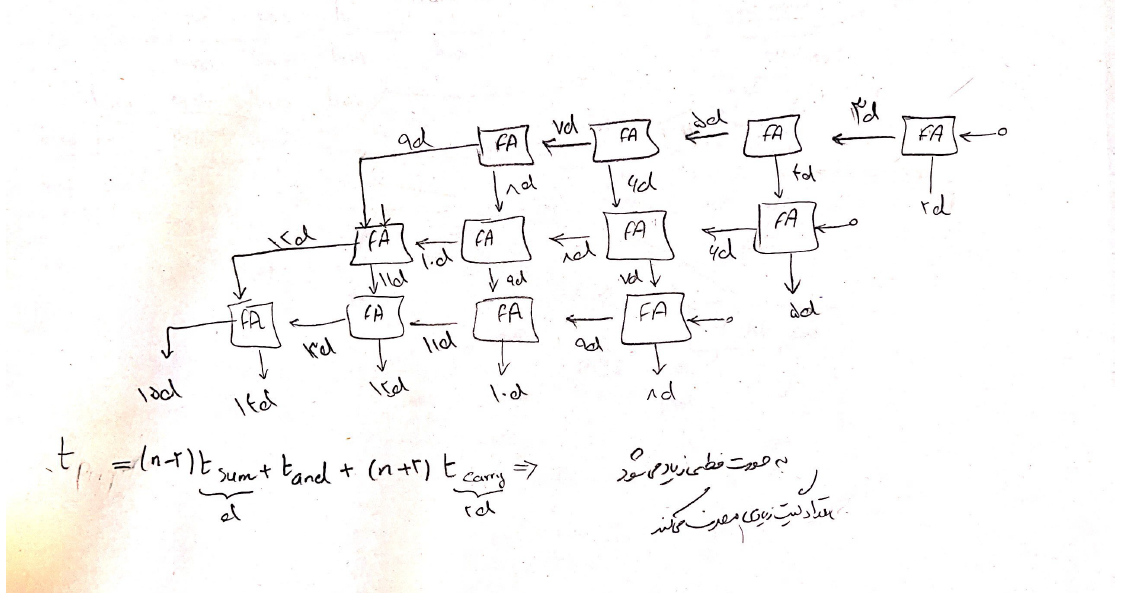 ۹d FA ۷d FA ۵d FA ۳d FA ۰
۸d ۶d ۴d ۲d
۱۲d FA ۱۰d FA ۸d FA ۶d FA ۰
۱۱d ۹d ۷d ۵d
FA ۱۳d FA ۱۱d FA ۹d FA ۰
۱۵d ۱۴d ۱۲d ۱۰d ۸d
t = (n-۲) t sum + t and + (n+۲) t carry ⇒ به صورت خطی زیاد می شود
d ۲d
تعداد گیت زیادی مصرف می کند.